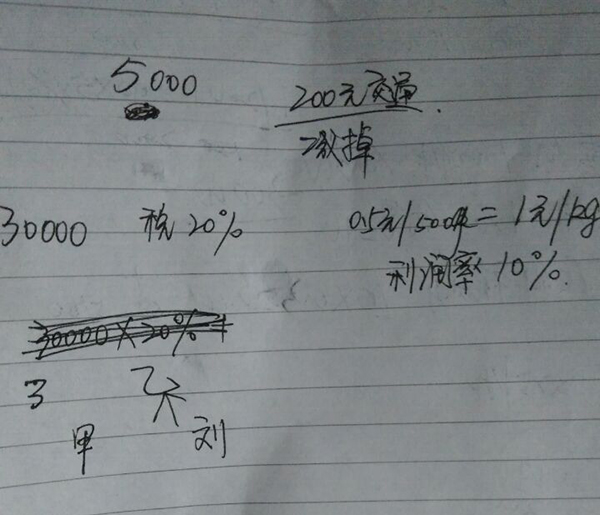 5000
200元交通
减掉
30000 税20%
0.5元/500米=1元/kg
利润率10%.
30000×20%+
3
甲 刘